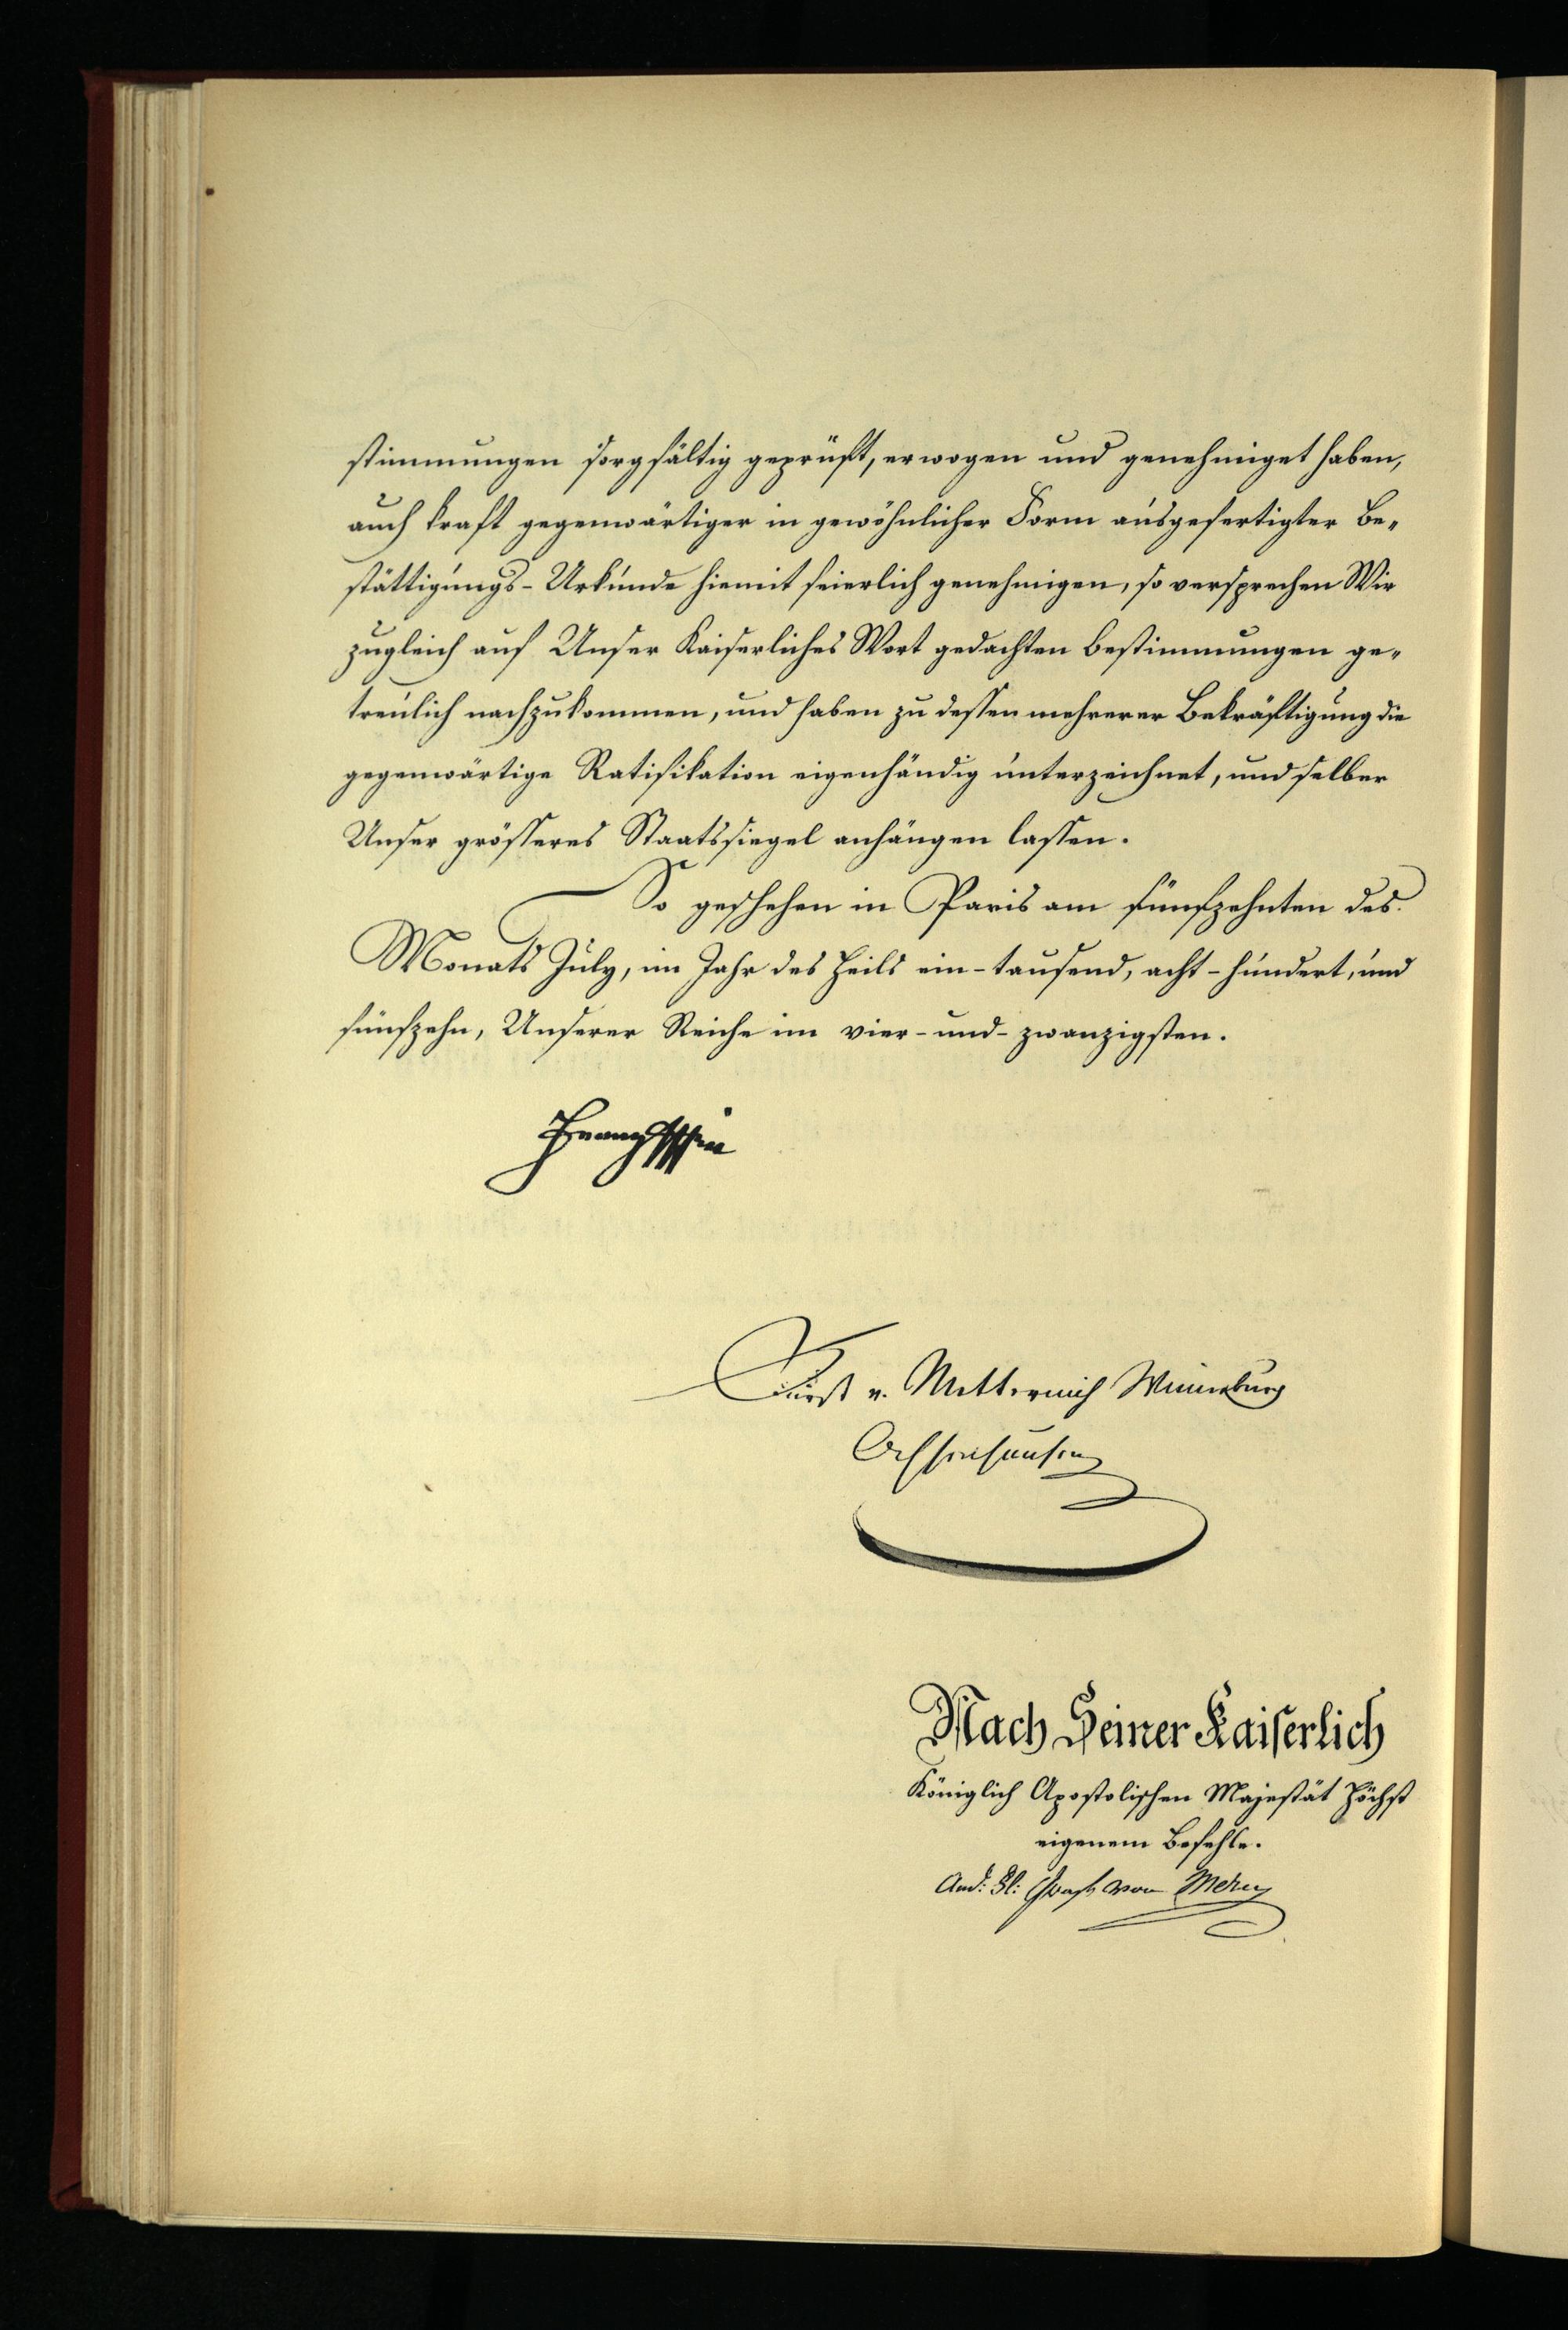 stimmungen sorgfältig geprüft, erwogen und genehmiget haben,
auch kraft gegenwärtiger in gewöhnlicher Form ausgefertigter Be-
stättigungs-Urkunde hiemit feierlich genehmigen, so versprechen Wir
zugleich auf Unser Kaiserliches Wort gedachten Bestimmungen ge-
treulich nachzukommen, und haben zu dessen mehrerer Bekräftigung die
gegenwärtige Ratifikation eigenhändig unterzeichnet, und selber
Unser grösseres Staatssiegel anhängen lassen.
So geschehen in Paris am fünfzehnten des
Monats July, im Jahr des Heils ein-tausend, acht-hundert, und
fünfzehn, Unserer Reiche im vier-und-zwanzigsten.
Franz
Fürst v. Metternich Winneburg
Ochsenhausen
Nach Seiner Kaiserlich
Königlich Apostolischen Majestät Höchst
eigenem Befehle.
And: Fl: Graf von Mercy